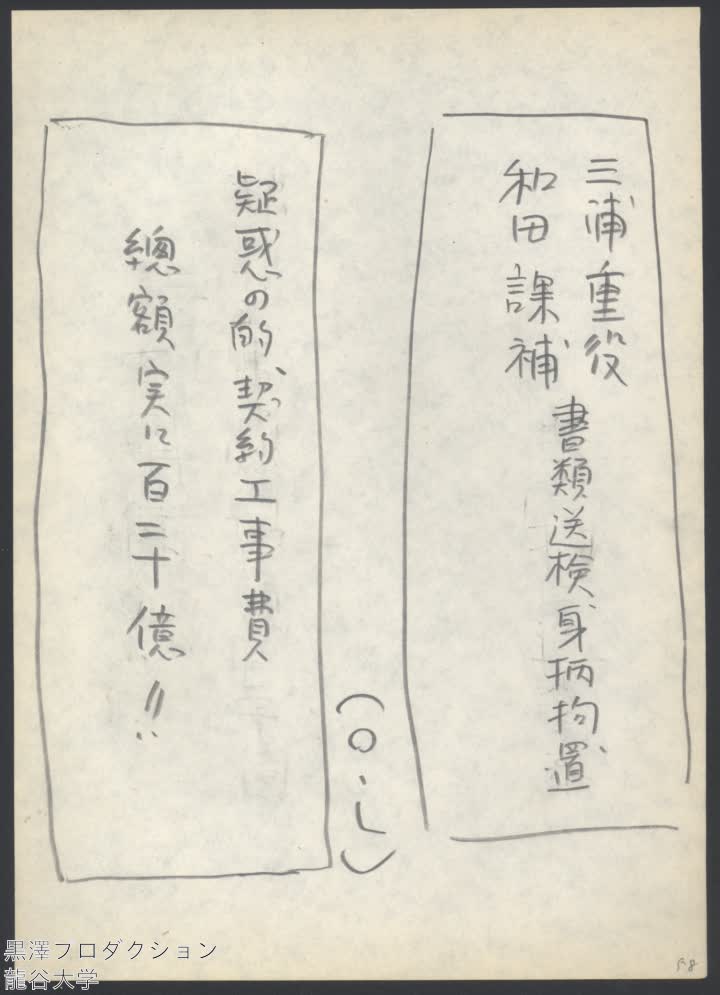 三浦重役
和田課補
書類送検身柄拘置
(O・L)
疑惑の的、契約工事費
總額実に百二十億!!
黒澤プロダクション
龍谷大学